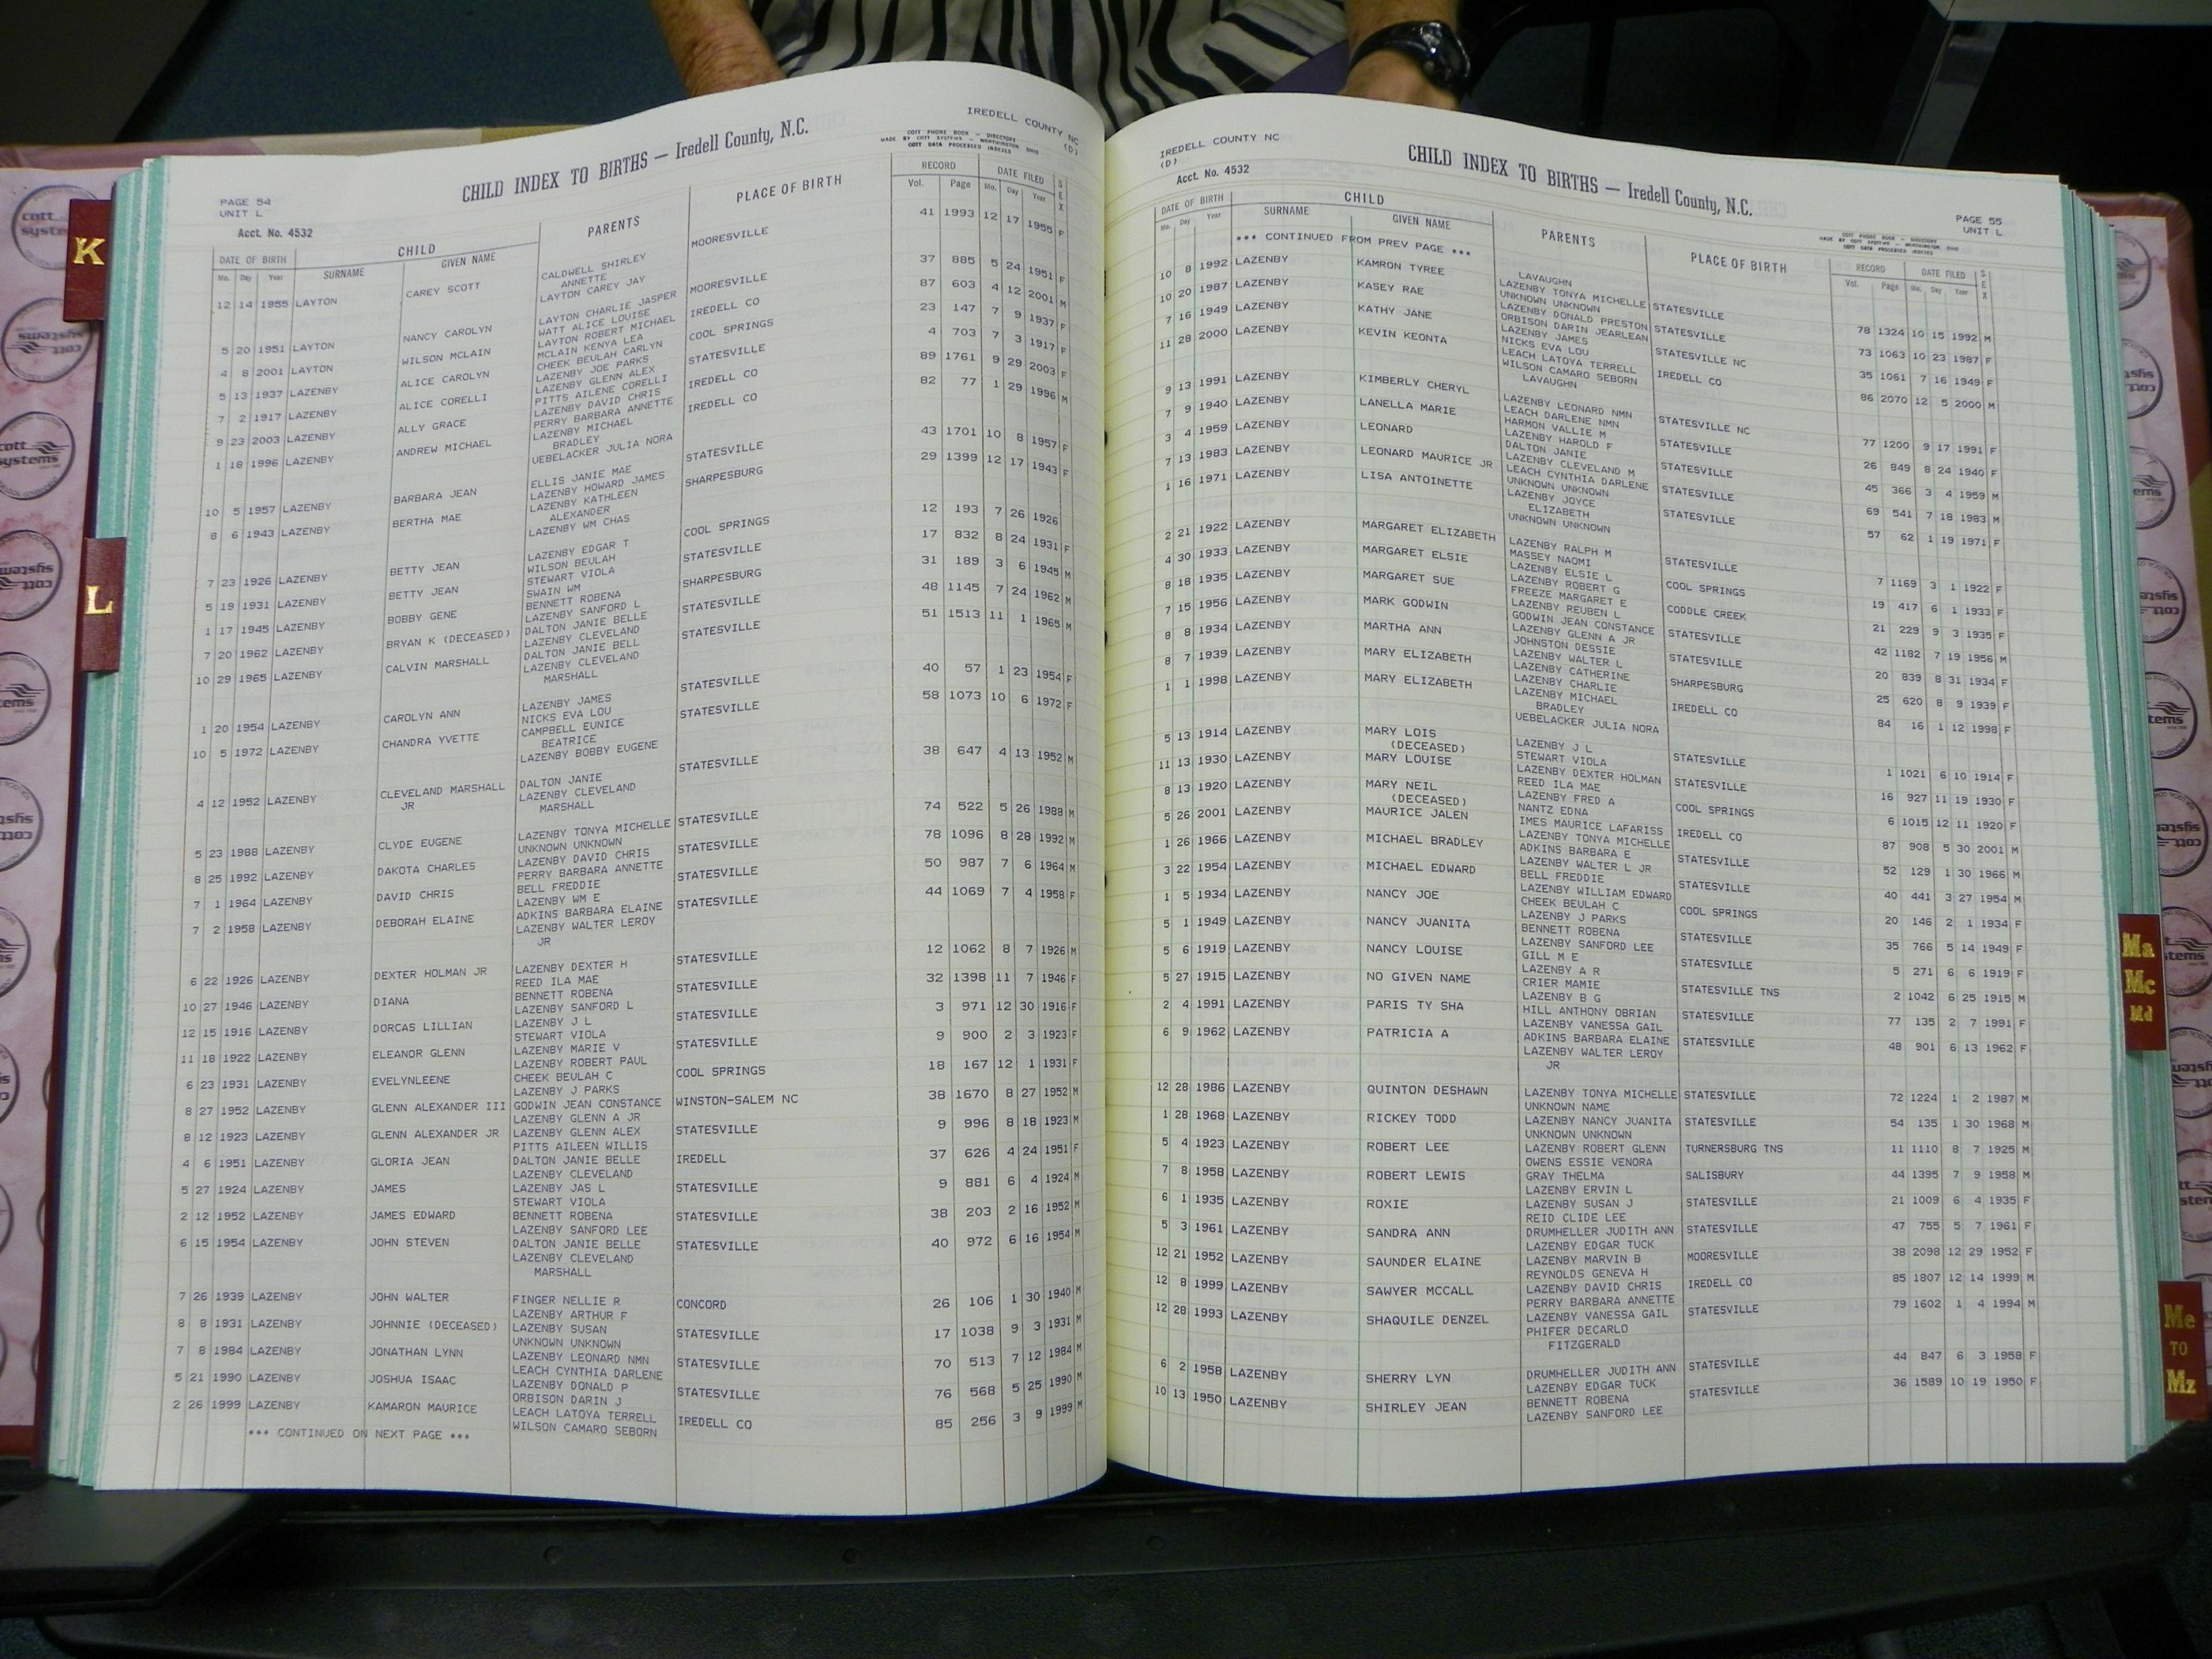 IREDELL COUNTY NC
(D)
CHILD INDEX TO BIRTHS — Iredell County, N.C.
COTT PHONE BOOK — DIRECTORY
MADE BY COTT SYSTEMS — WORTHINGTON OHIO
COTT DATA PROCESSED INDEXES
PAGE 54
UNIT L
Acct. No. 4532
DATE OF BIRTH CHILD PARENTS PLACE OF BIRTH RECORD DATE FILED SEX
Mo. Day Year SURNAME GIVEN NAME Vol. Page Mo. Day Year
12 14 1955 LAYTON CAREY SCOTT CALDWELL SHIRLEY MOORESVILLE 41 1993 12 17 1955 F
ANNETTE
LAYTON CAREY JAY
5 20 1951 LAYTON NANCY CAROLYN LAYTON CHARLIE JASPER MOORESVILLE 37 885 5 24 1951 F
WATT ALICE LOUISE
4 8 2001 LAYTON WILSON MCLAIN LAYTON ROBERT MICHAEL IREDELL CO 87 603 4 12 2001 M
MCLAIN KENYA LEA
5 13 1937 LAZENBY ALICE CAROLYN CHEEK BEULAH CARLYN COOL SPRINGS 23 147 7 9 1937 F
LAZENBY JOE PARKS
7 2 1917 LAZENBY ALICE CORELLI LAZENBY GLENN ALEX STATESVILLE 4 703 7 3 1917 F
PITTS AILENE CORELLI
9 23 2003 LAZENBY ALLY GRACE LAZENBY DAVID CHRIS IREDELL CO 89 1761 9 29 2003 F
PERRY BARBARA ANNETTE
1 18 1996 LAZENBY ANDREW MICHAEL LAZENBY MICHAEL IREDELL CO 82 77 1 29 1996 M
BRADLEY
UEBELACKER JULIA NORA
10 5 1957 LAZENBY BARBARA JEAN ELLIS JANIE MAE STATESVILLE 43 1701 10 8 1957 F
LAZENBY HOWARD JAMES
8 6 1943 LAZENBY BERTHA MAE LAZENBY KATHLEEN SHARPESBURG 29 1399 12 17 1943 F
ALEXANDER
LAZENBY WM CHAS
7 23 1926 LAZENBY BETTY JEAN LAZENBY EDGAR T COOL SPRINGS 12 193 7 26 1926
WILSON BEULAH
5 19 1931 LAZENBY BETTY JEAN STEWART VIOLA STATESVILLE 17 832 8 24 1931 F
SWAIN WM
1 17 1945 LAZENBY BOBBY GENE BENNETT ROBENA SHARPESBURG 31 189 3 6 1945 M
LAZENBY SANFORD L
7 20 1962 LAZENBY BRYAN K (DECEASED) DALTON JANIE BELLE STATESVILLE 48 1145 7 24 1962 M
LAZENBY CLEVELAND
10 29 1965 LAZENBY CALVIN MARSHALL DALTON JANIE BELL STATESVILLE 51 1513 11 1 1965 M
LAZENBY CLEVELAND
MARSHALL
1 20 1954 LAZENBY CAROLYN ANN LAZENBY JAMES STATESVILLE 40 57 1 23 1954 F
NICKS EVA LOU
10 5 1972 LAZENBY CHANDRA YVETTE CAMPBELL EUNICE STATESVILLE 58 1073 10 6 1972 F
BEATRICE
LAZENBY BOBBY EUGENE
4 12 1952 LAZENBY CLEVELAND MARSHALL DALTON JANIE STATESVILLE 38 647 4 13 1952 M
JR LAZENBY CLEVELAND
MARSHALL
5 23 1988 LAZENBY CLYDE EUGENE LAZENBY TONYA MICHELLE STATESVILLE 74 522 5 26 1988 M
UNKNOWN UNKNOWN
8 25 1992 LAZENBY DAKOTA CHARLES LAZENBY DAVID CHRIS STATESVILLE 78 1096 8 28 1992 M
PERRY BARBARA ANNETTE
7 1 1964 LAZENBY DAVID CHRIS BELL FREDDIE STATESVILLE 50 987 7 6 1964 M
LAZENBY WM E
7 2 1958 LAZENBY DEBORAH ELAINE ADKINS BARBARA ELAINE STATESVILLE 44 1069 7 4 1958 F
LAZENBY WALTER LEROY
JR
6 22 1926 LAZENBY DEXTER HOLMAN JR LAZENBY DEXTER H STATESVILLE 12 1062 8 7 1926 M
REED ILA MAE
10 27 1946 LAZENBY DIANA BENNETT ROBENA STATESVILLE 32 1398 11 7 1946 F
LAZENBY SANFORD L
12 15 1916 LAZENBY DORCAS LILLIAN LAZENBY J L STATESVILLE 3 971 12 30 1916 F
STEWART VIOLA
11 18 1922 LAZENBY ELEANOR GLENN LAZENBY MARIE V STATESVILLE 9 900 2 3 1923 F
LAZENBY ROBERT PAUL
6 23 1931 LAZENBY EVELYNLEENE CHEEK BEULAH C COOL SPRINGS 18 167 12 1 1931 F
LAZENBY J PARKS
8 27 1952 LAZENBY GLENN ALEXANDER III GODWIN JEAN CONSTANCE WINSTON-SALEM NC 38 1670 8 27 1952 M
LAZENBY GLENN A JR
8 12 1923 LAZENBY GLENN ALEXANDER JR LAZENBY GLENN ALEX STATESVILLE 9 996 8 18 1923 M
PITTS AILEEN WILLIS
4 6 1951 LAZENBY GLORIA JEAN DALTON JANIE BELLE IREDELL 37 626 4 24 1951 F
LAZENBY CLEVELAND
5 27 1924 LAZENBY JAMES LAZENBY JAS L STATESVILLE 9 881 6 4 1924 M
STEWART VIOLA
2 12 1952 LAZENBY JAMES EDWARD BENNETT ROBENA STATESVILLE 38 203 2 16 1952 M
LAZENBY SANFORD LEE
6 15 1954 LAZENBY JOHN STEVEN DALTON JANIE BELLE STATESVILLE 40 972 6 16 1954 M
LAZENBY CLEVELAND
MARSHALL
7 26 1939 LAZENBY JOHN WALTER FINGER NELLIE R CONCORD 26 106 1 30 1940 M
LAZENBY ARTHUR F
8 8 1931 LAZENBY JOHNNIE (DECEASED) LAZENBY SUSAN STATESVILLE 17 1038 9 3 1931 M
UNKNOWN UNKNOWN
7 8 1984 LAZENBY JONATHAN LYNN LAZENBY LEONARD NMN STATESVILLE 70 513 7 12 1984 M
LEACH CYNTHIA DARLENE
5 21 1990 LAZENBY JOSHUA ISAAC LAZENBY DONALD P STATESVILLE 76 568 5 25 1990 M
ORBISON DARIN J
2 26 1999 LAZENBY KAMARON MAURICE LEACH LATOYA TERRELL IREDELL CO 85 256 3 9 1999 M
WILSON CAMARO SEBORN
*** CONTINUED ON NEXT PAGE ***
IREDELL COUNTY NC
(D)
Acct. No. 4532
CHILD INDEX TO BIRTHS — Iredell County, N.C.
PAGE 55
UNIT L
COTT PHONE BOOK — DIRECTORY
MADE BY COTT SYSTEMS — WORTHINGTON OHIO
COTT DATA PROCESSED INDEXES
DATE OF BIRTH CHILD PARENTS PLACE OF BIRTH RECORD DATE FILED SEX
Mo. Day Year SURNAME GIVEN NAME Vol. Page Mo. Day Year
*** CONTINUED FROM PREV PAGE ***
LAVAUGHN
10 8 1992 LAZENBY KAMRON TYREE LAZENBY TONYA MICHELLE STATESVILLE 78 1324 10 15 1992 M
UNKNOWN UNKNOWN
10 20 1987 LAZENBY KASEY RAE LAZENBY DONALD PRESTON STATESVILLE 73 1063 10 23 1987 F
ORBISON DARIN JEARLEAN
7 16 1949 LAZENBY KATHY JANE LAZENBY JAMES STATESVILLE NC 35 1061 7 16 1949 F
NICKS EVA LOU
11 28 2000 LAZENBY KEVIN KEONTA LEACH LATOYA TERRELL IREDELL CO 86 2070 12 5 2000 M
WILSON CAMARO SEBORN
LAVAUGHN
9 13 1991 LAZENBY KIMBERLY CHERYL LAZENBY LEONARD NMN STATESVILLE NC 77 1200 9 17 1991 F
LEACH DARLENE NMN
7 9 1940 LAZENBY LANELLA MARIE HARMON VALLIE M STATESVILLE 26 849 8 24 1940 F
LAZENBY HAROLD F
3 4 1959 LAZENBY LEONARD DALTON JANIE STATESVILLE 45 366 3 4 1959 M
LAZENBY CLEVELAND M
7 13 1983 LAZENBY LEONARD MAURICE JR LEACH CYNTHIA DARLENE STATESVILLE 69 541 7 18 1983 M
UNKNOWN UNKNOWN
1 16 1971 LAZENBY LISA ANTOINETTE LAZENBY JOYCE STATESVILLE 57 62 1 19 1971 F
ELIZABETH
UNKNOWN UNKNOWN
2 21 1922 LAZENBY MARGARET ELIZABETH LAZENBY RALPH M STATESVILLE 7 1169 3 1 1922 F
MASSEY NAOMI
4 30 1933 LAZENBY MARGARET ELSIE LAZENBY ELSIE L COOL SPRINGS 19 417 6 1 1933 F
LAZENBY ROBERT G
8 18 1935 LAZENBY MARGARET SUE FREEZE MARGARET E CODDLE CREEK 21 229 9 3 1935 F
LAZENBY REUBEN L
7 15 1956 LAZENBY MARK GODWIN GODWIN JEAN CONSTANCE STATESVILLE 42 1182 7 19 1956 M
LAZENBY GLENN A JR
8 8 1934 LAZENBY MARTHA ANN JOHNSTON DESSIE STATESVILLE 20 839 8 31 1934 F
LAZENBY WALTER L
8 7 1939 LAZENBY MARY ELIZABETH LAZENBY CATHERINE SHARPESBURG 25 620 8 9 1939 F
LAZENBY CHARLIE
1 1 1998 LAZENBY MARY ELIZABETH LAZENBY MICHAEL IREDELL CO 84 16 1 12 1998 F
BRADLEY
UEBELACKER JULIA NORA
5 13 1914 LAZENBY MARY LOIS LAZENBY J L STATESVILLE 1 1021 6 10 1914 F
(DECEASED) STEWART VIOLA
11 13 1930 LAZENBY MARY LOUISE LAZENBY DEXTER HOLMAN STATESVILLE 16 927 11 19 1930 F
REED ILA MAE
8 13 1920 LAZENBY MARY NEIL LAZENBY FRED A COOL SPRINGS 6 1015 12 11 1920 F
(DECEASED) NANTZ EDNA
5 26 2001 LAZENBY MAURICE JALEN IMES MAURICE LAFARISS IREDELL CO 87 908 5 30 2001 M
LAZENBY TONYA MICHELLE
1 26 1966 LAZENBY MICHAEL BRADLEY ADKINS BARBARA E STATESVILLE 52 129 1 30 1966 M
LAZENBY WALTER L JR
3 22 1954 LAZENBY MICHAEL EDWARD BELL FREDDIE STATESVILLE 40 441 3 27 1954 M
LAZENBY WILLIAM EDWARD
1 5 1934 LAZENBY NANCY JOE CHEEK BEULAH C COOL SPRINGS 20 146 2 1 1934 F
LAZENBY J PARKS
5 1 1949 LAZENBY NANCY JUANITA BENNETT ROBENA STATESVILLE 35 766 5 14 1949 F
LAZENBY SANFORD LEE
5 6 1919 LAZENBY NANCY LOUISE GILL M E STATESVILLE 5 271 6 6 1919 F
LAZENBY A R
5 27 1915 LAZENBY NO GIVEN NAME CRIER MAMIE STATESVILLE TNS 2 1042 6 25 1915 M
LAZENBY B G
2 4 1991 LAZENBY PARIS TY SHA HILL ANTHONY OBRIAN STATESVILLE 77 135 2 7 1991 F
LAZENBY VANESSA GAIL
6 9 1962 LAZENBY PATRICIA A ADKINS BARBARA ELAINE STATESVILLE 48 901 6 13 1962 F
LAZENBY WALTER LEROY
JR
12 28 1986 LAZENBY QUINTON DESHAWN LAZENBY TONYA MICHELLE STATESVILLE 72 1224 1 2 1987 M
UNKNOWN NAME
1 28 1968 LAZENBY RICKEY TODD LAZENBY NANCY JUANITA STATESVILLE 54 135 1 30 1968 M
UNKNOWN UNKNOWN
5 4 1923 LAZENBY ROBERT LEE LAZENBY ROBERT GLENN TURNERSBURG TNS 11 1110 8 7 1925 M
OWENS ESSIE VENORA
7 8 1958 LAZENBY ROBERT LEWIS GRAY THELMA SALISBURY 44 1395 7 9 1958 M
LAZENBY ERVIN L
6 1 1935 LAZENBY ROXIE LAZENBY SUSAN J STATESVILLE 21 1009 6 4 1935 F
REID CLIDE LEE
5 3 1961 LAZENBY SANDRA ANN DRUMHELLER JUDITH ANN STATESVILLE 47 755 5 7 1961 F
LAZENBY EDGAR TUCK
12 21 1952 LAZENBY SAUNDER ELAINE LAZENBY MARVIN B MOORESVILLE 38 2098 12 29 1952 F
REYNOLDS GENEVA H
12 8 1999 LAZENBY SAWYER MCCALL LAZENBY DAVID CHRIS IREDELL CO 85 1807 12 14 1999 M
PERRY BARBARA ANNETTE
12 28 1993 LAZENBY SHAQUILE DENZEL LAZENBY VANESSA GAIL STATESVILLE 79 1602 1 4 1994 M
PHIFER DECARLO
FITZGERALD
6 2 1958 LAZENBY SHERRY LYN DRUMHELLER JUDITH ANN STATESVILLE 44 847 6 3 1958 F
LAZENBY EDGAR TUCK
10 13 1950 LAZENBY SHIRLEY JEAN BENNETT ROBENA STATESVILLE 36 1589 10 19 1950 F
LAZENBY SANFORD LEE
K
L
Ma
Mc
Md
Me
TO
Mz
cott
systems